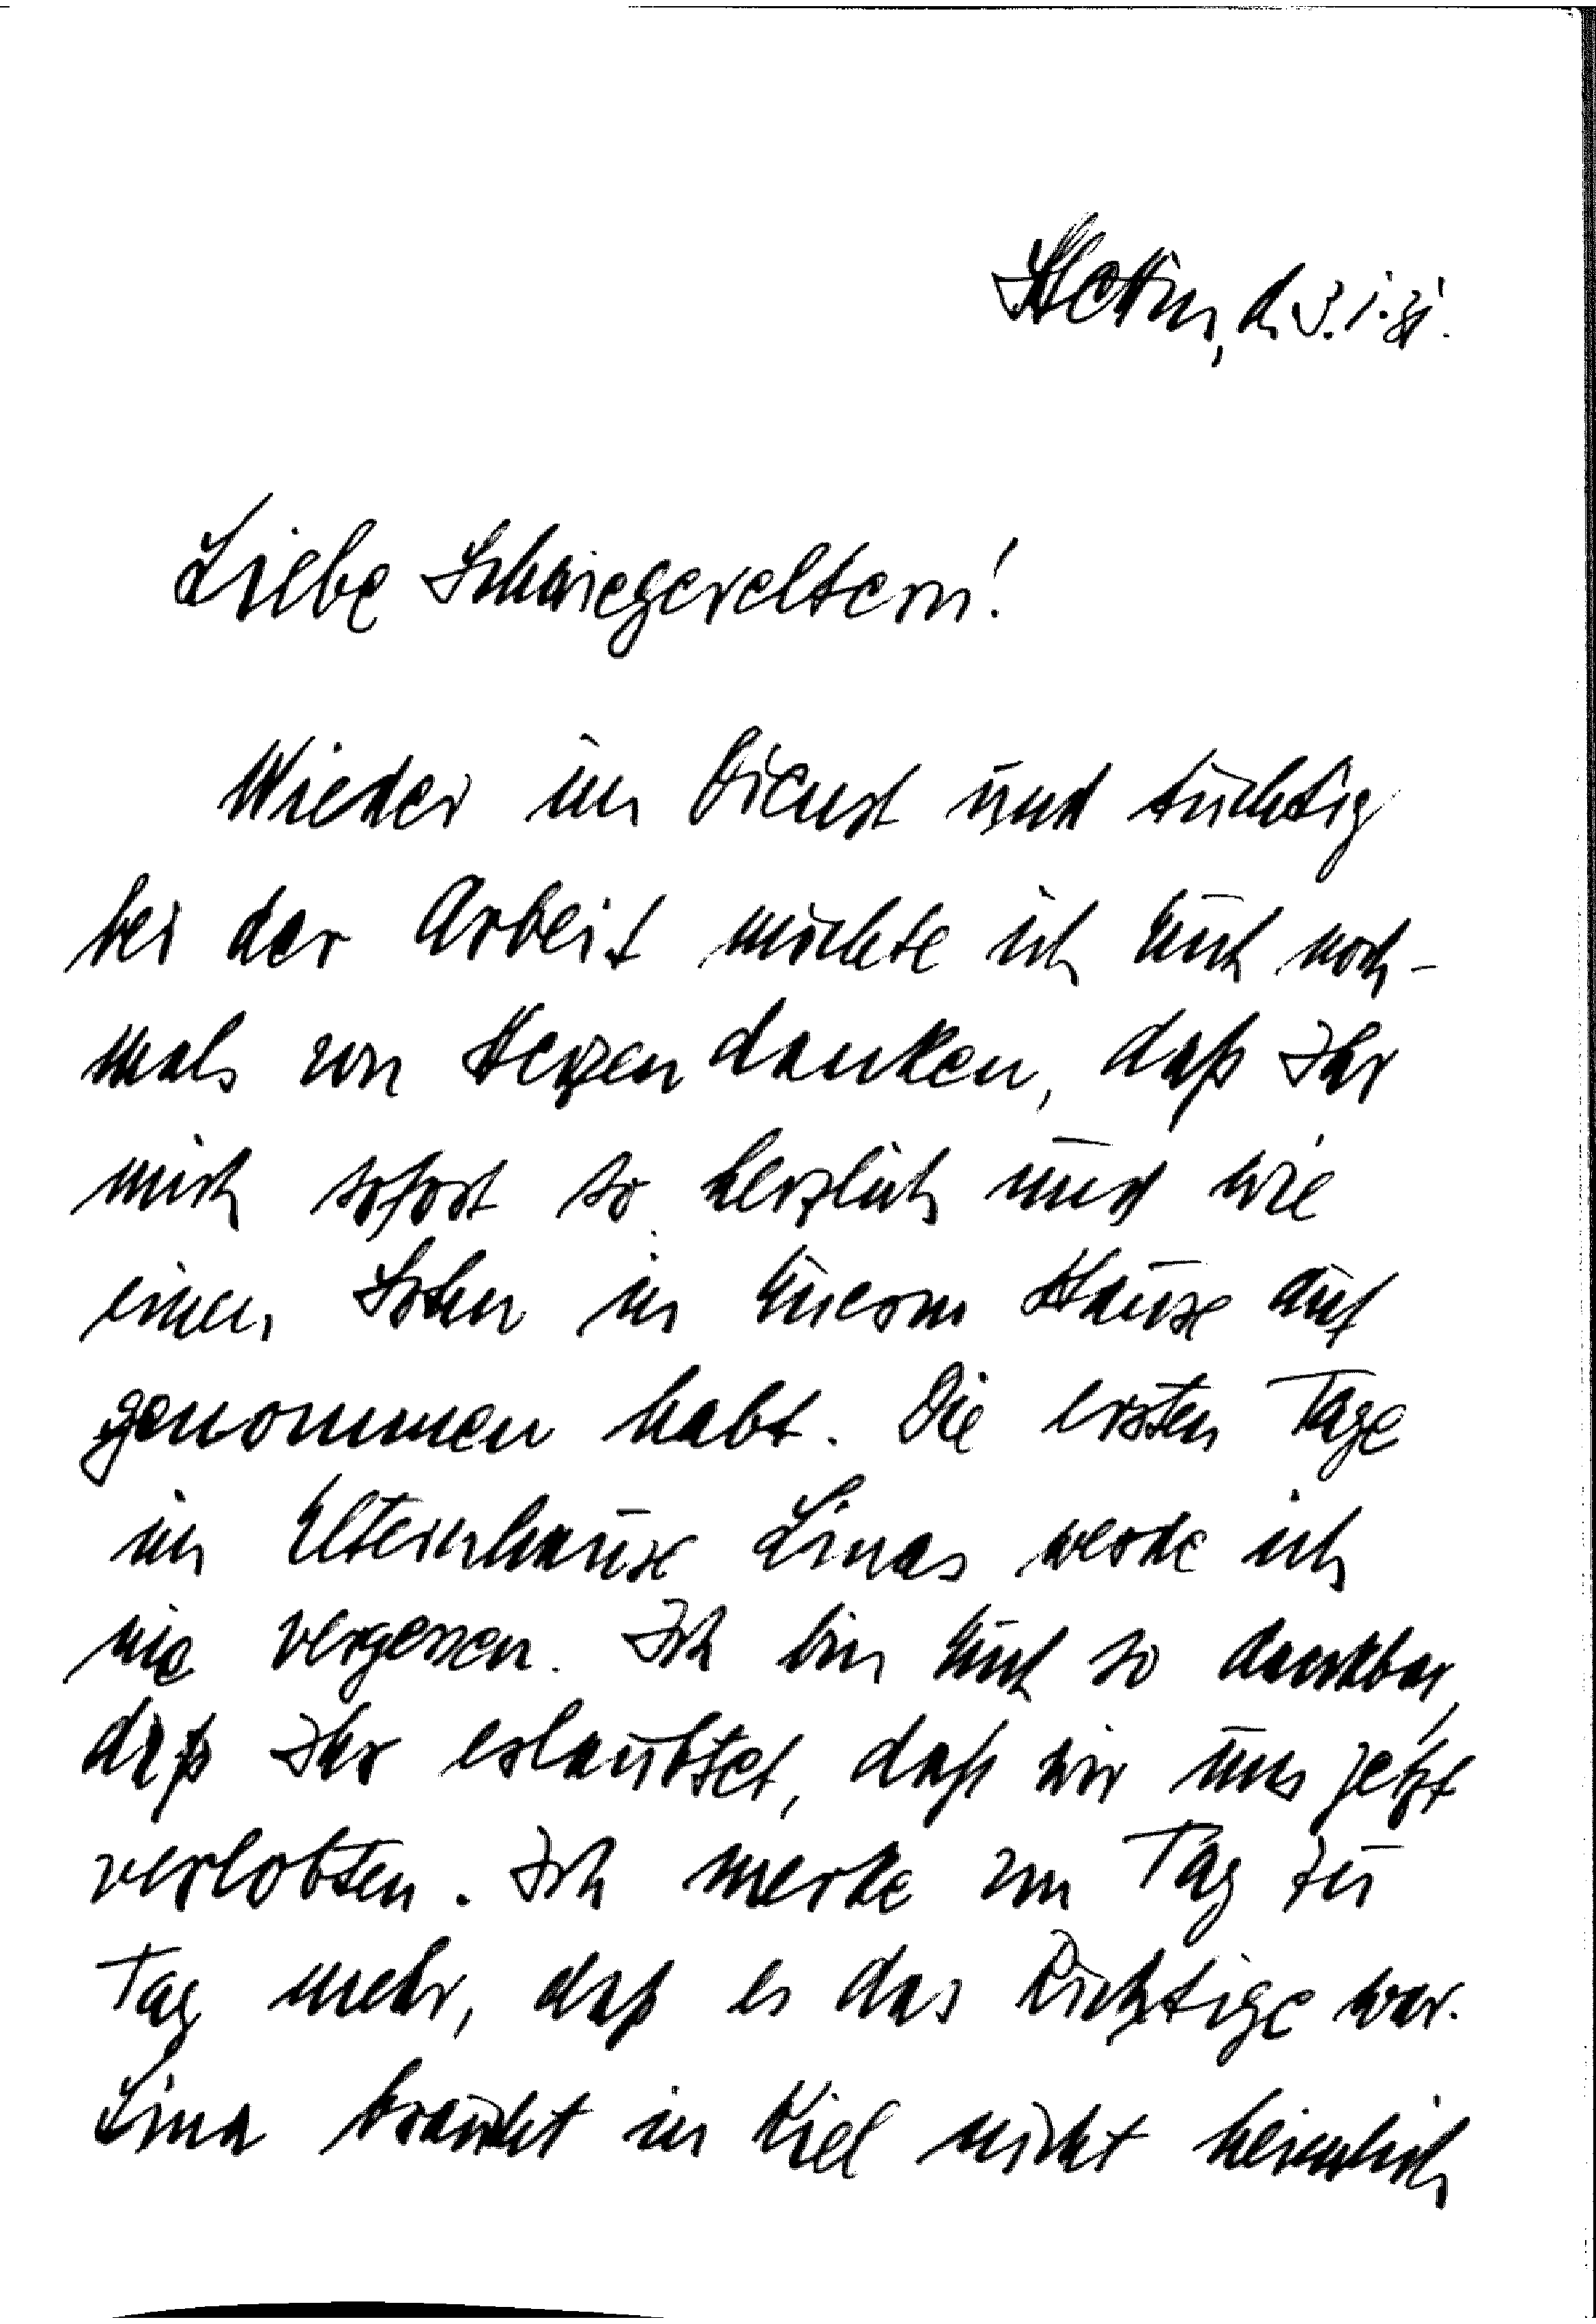 Stettin, d. 3.1.31.
Liebe Schwiegereltern!
Wieder im Dienst und tüchtig
bei der Arbeit möchte ich Euch noch-
mals von Herzen danken, daß Ihr
mich sofort so herzlich und wie
einen Sohn in Euerm Hause auf
genommen habt. Die ersten Tage
im Elternhause Linas werde ich
nie vergessen. Ich bin Euch so dankbar,
daß Ihr erlaubtet, daß wir uns jetzt
verlobten. Ich merke von Tag zu
Tag mehr, daß es das Richtige war.
Lina braucht in Kiel nicht heimlich